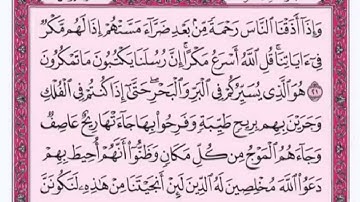 وَإِذَآ أَذَقْنَا ٱلنَّاسَ رَحْمَةً مِّنۢ بَعْدِ ضَرَّآءَ مَسَّتْهُمْ إِذَا لَهُم مَّكْرٌ
فِىٓ ءَايَاتِنَا قُلِ ٱللَّهُ أَسْرَعُ مَكْرًا إِنَّ رُسُلَنَا يَكْتُبُونَ مَا تَمْكُرُونَ
﴿٢١﴾ هُوَ ٱلَّذِى يُسَيِّرُكُمْ فِى ٱلْبَرِّ وَٱلْبَحْرِ حَتَّىٰٓ إِذَا كُنتُمْ فِى ٱلْفُلْكِ
وَجَرَيْنَ بِهِم بِرِيحٍ طَيِّبَةٍ وَفَرِحُوا۟ بِهَا جَآءَتْهَا رِيحٌ عَاصِفٌ
وَجَآءَهُمُ ٱلْمَوْجُ مِن كُلِّ مَكَانٍ وَظَنُّوٓا۟ أَنَّهُمْ أُحِيطَ بِهِمْ
دَعَوُا۟ ٱللَّهَ مُخْلِصِينَ لَهُ ٱلدِّينَ لَئِنْ أَنجَيْتَنَا مِنْ هَٰذِهِۦ لَنَكُونَنَّ